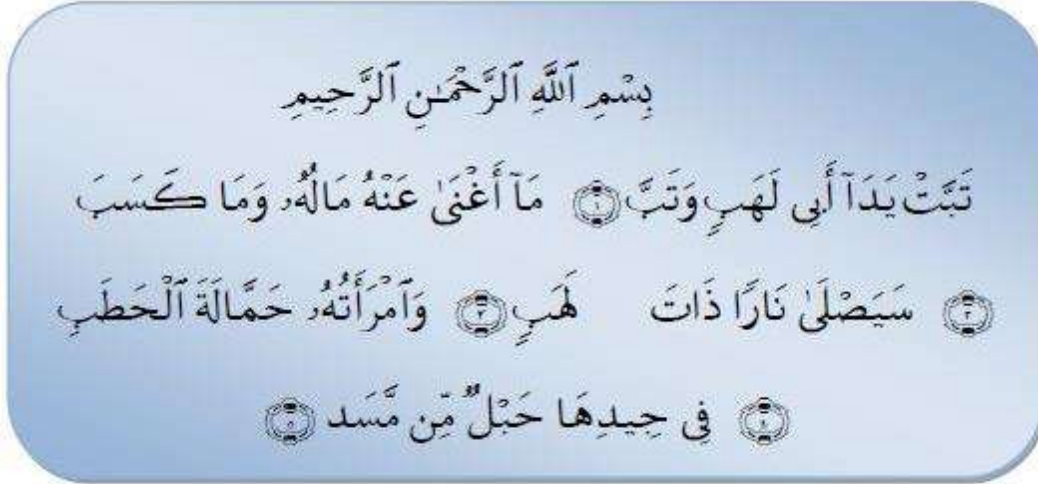 بِسْمِ ٱللَّهِ ٱلرَّحْمَـٰنِ ٱلرَّحِيمِ
تَبَّتْ يَدَآ أَبِى لَهَبٍ وَتَبَّ ۝١ مَآ أَغْنَىٰ عَنْهُ مَالُهُۥ وَمَا كَسَبَ
۝٢ سَيَصْلَىٰ نَارًا ذَاتَ لَهَبٍ ۝٣ وَٱمْرَأَتُهُۥ حَمَّالَةَ ٱلْحَطَبِ
۝٤ فِى جِيدِهَا حَبْلٌ مِّن مَّسَد ۝٥